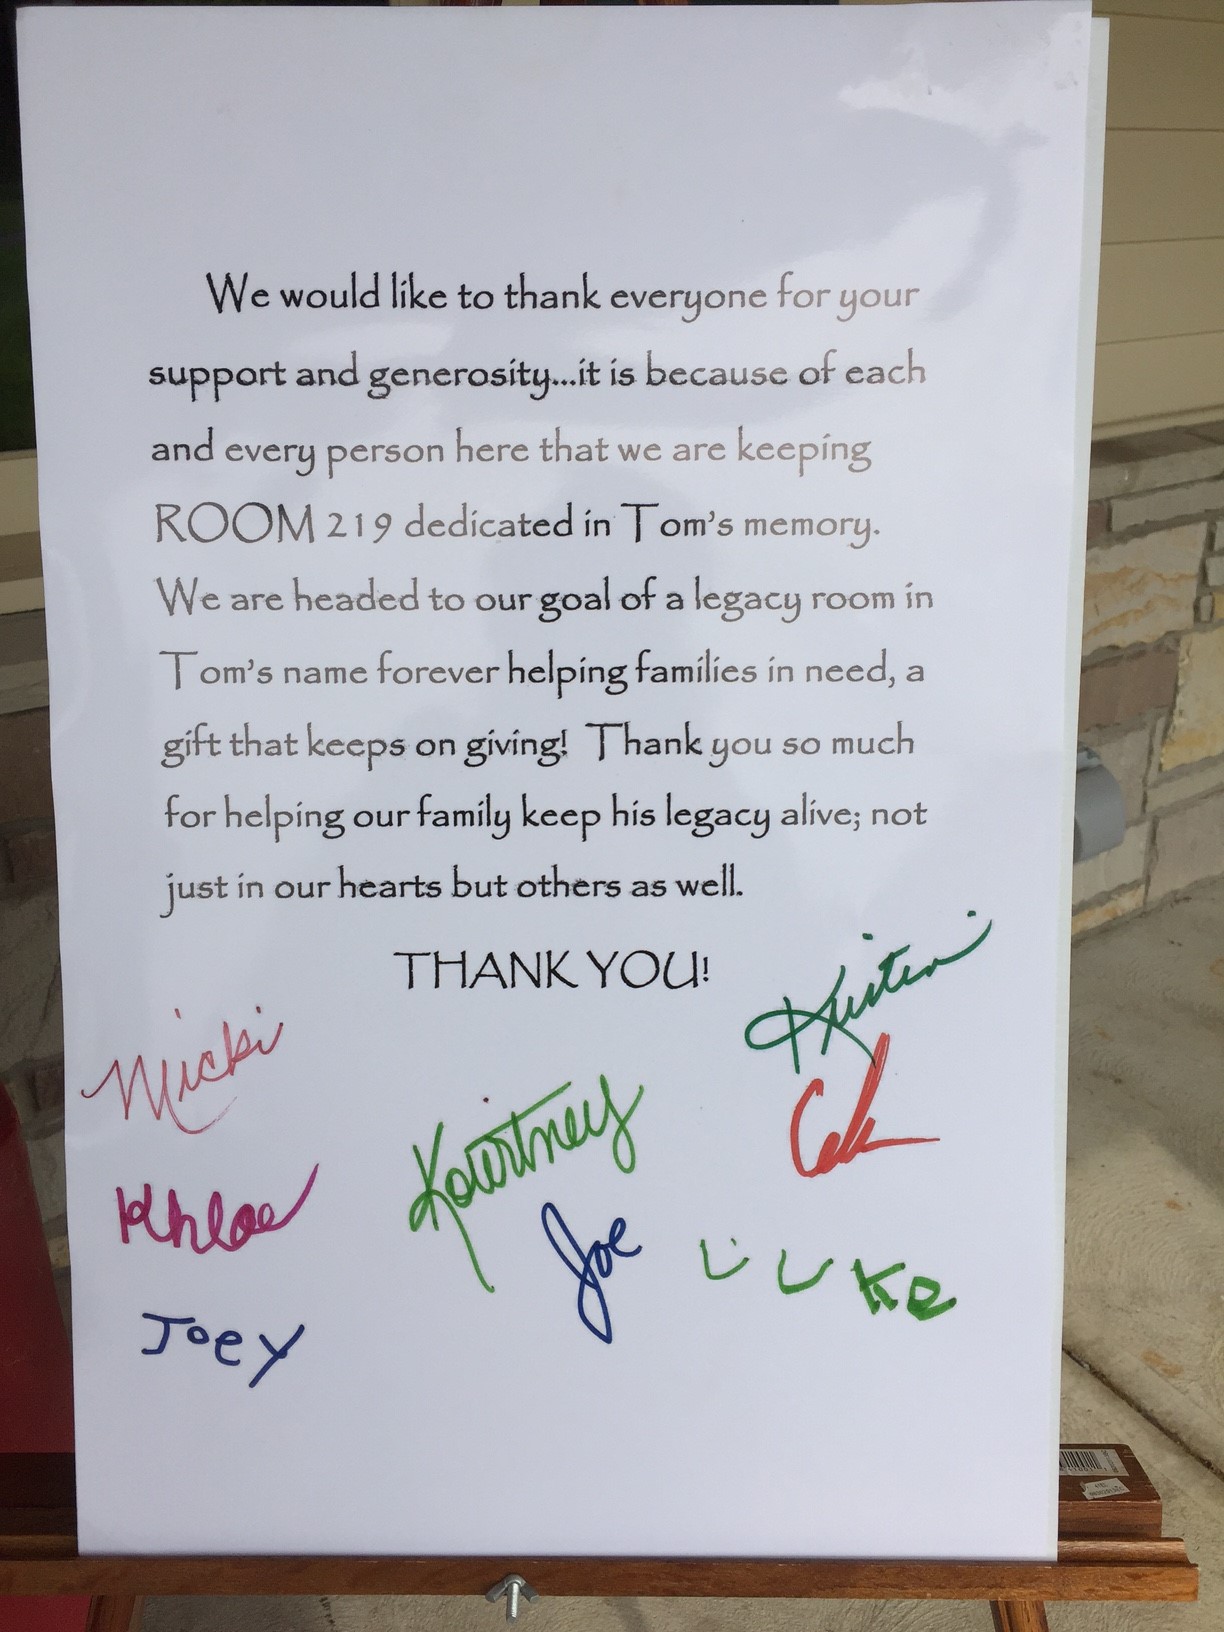 We would like to thank everyone for your
support and generosity...it is because of each
and every person here that we are keeping
ROOM 219 dedicated in Tom's memory.
We are headed to our goal of a legacy room in
Tom's name forever helping families in need, a
gift that keeps on giving!  Thank you so much
for helping our family keep his legacy alive; not
just in our hearts but others as well.
THANK YOU!
Kristen
Micki
Kourtney
Khloe
Joe
Luke
Joey